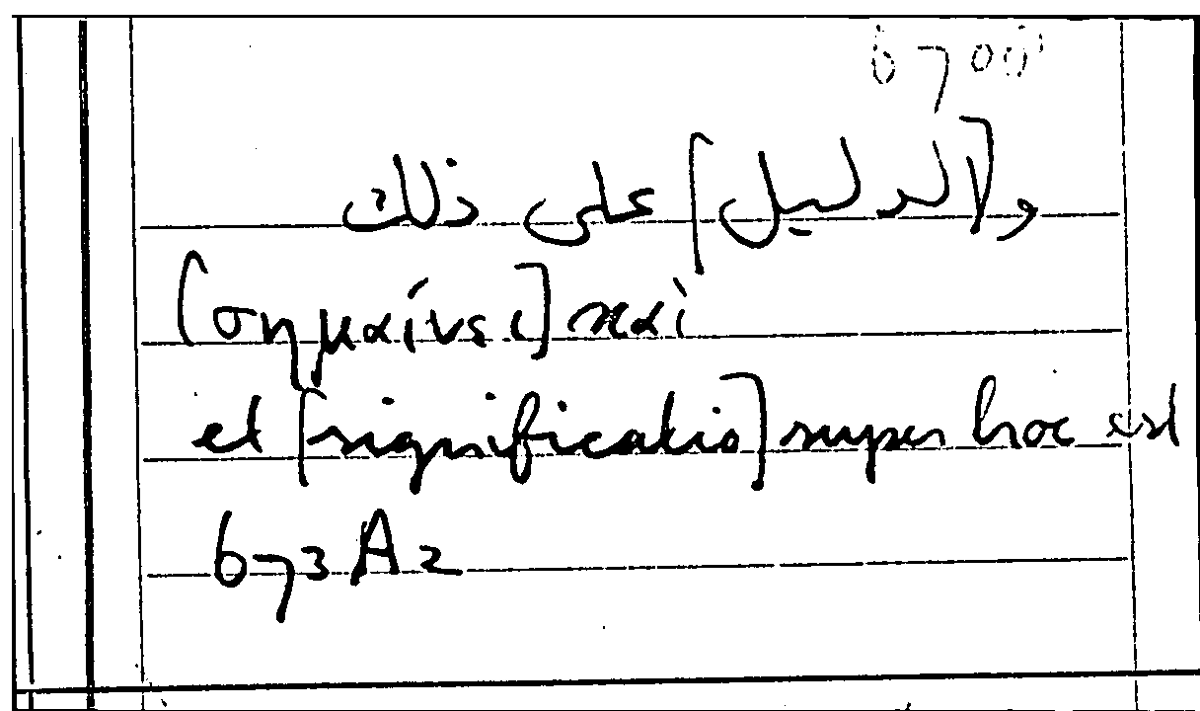 6700
و[الدليل] على ذلك
[σημαίνει] καὶ
et [significatio] super hoc est
673A2